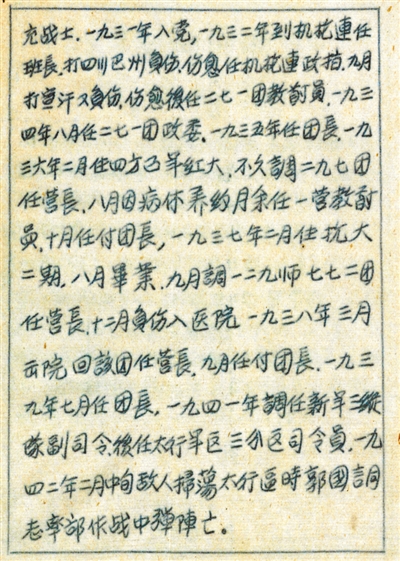 充战士.一九三一年入党,一九三二年到机枪連任
班長.打四川巴州負伤.伤愈任机枪連政指.九月
打宣汗又負伤.伤愈後任二七一团教導員.一九三
四年八月任二七一团政委.一九三五年任团長.一九
三六年二月住四方面军紅大,不久調二九七团
任营長.八月因病休养約月余任一营教導
員.十月任付团長,一九三七年二月住抗大
二期.八月畢業.九月調一二九师七七二团
任营長.十二月負伤入医院 一九三八年三月
出院 回該团任营長.九月任付团長.一九三
九年七月任团長,一九四一年調任新军三縱
隊副司令.後任太行军区三分区司令員.一九
四二年二月中旬敌人掃蕩太行區時郭國言同
志率部作战中彈陣亡。